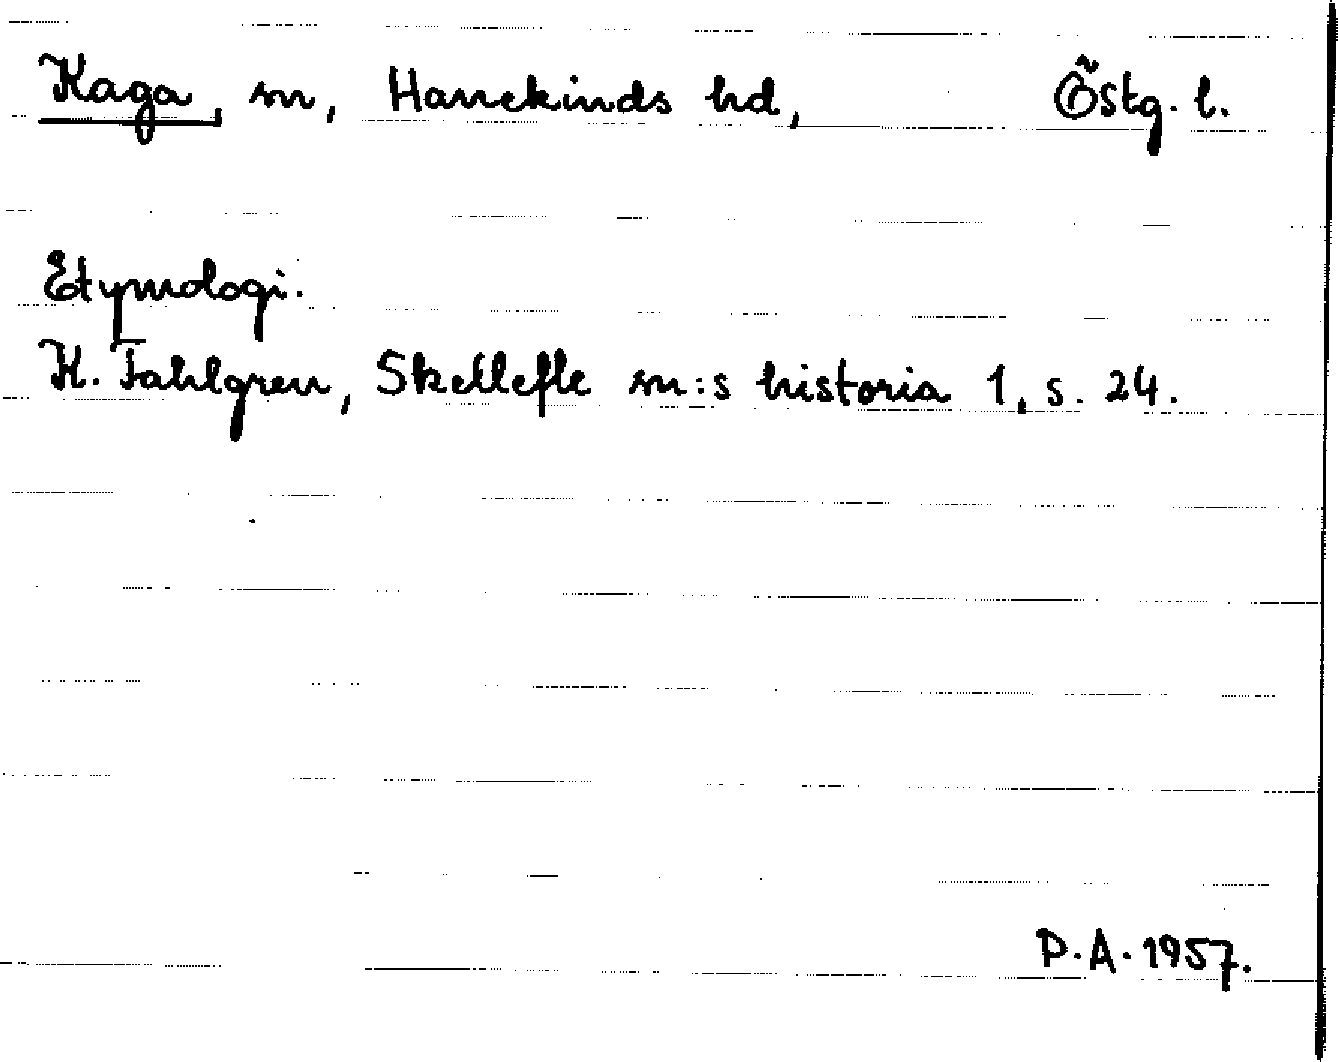 Kaga, sn, Hanekinds hd, Östg. l.
Etymologi.
K. Fahlgren, Skellefte sn:s historia 1, s. 24.
P.A. 1957.